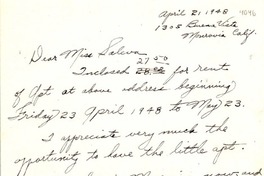 April 21 1948
1305 Buena Vista
Monrovia Calif.
Dear Miss
27.50
Inclosed 28.50 for rent
of Apt at above address beginning
Friday 23 April 1948 to May 23.
I appreciate very much the
opportunity to have the little apt.